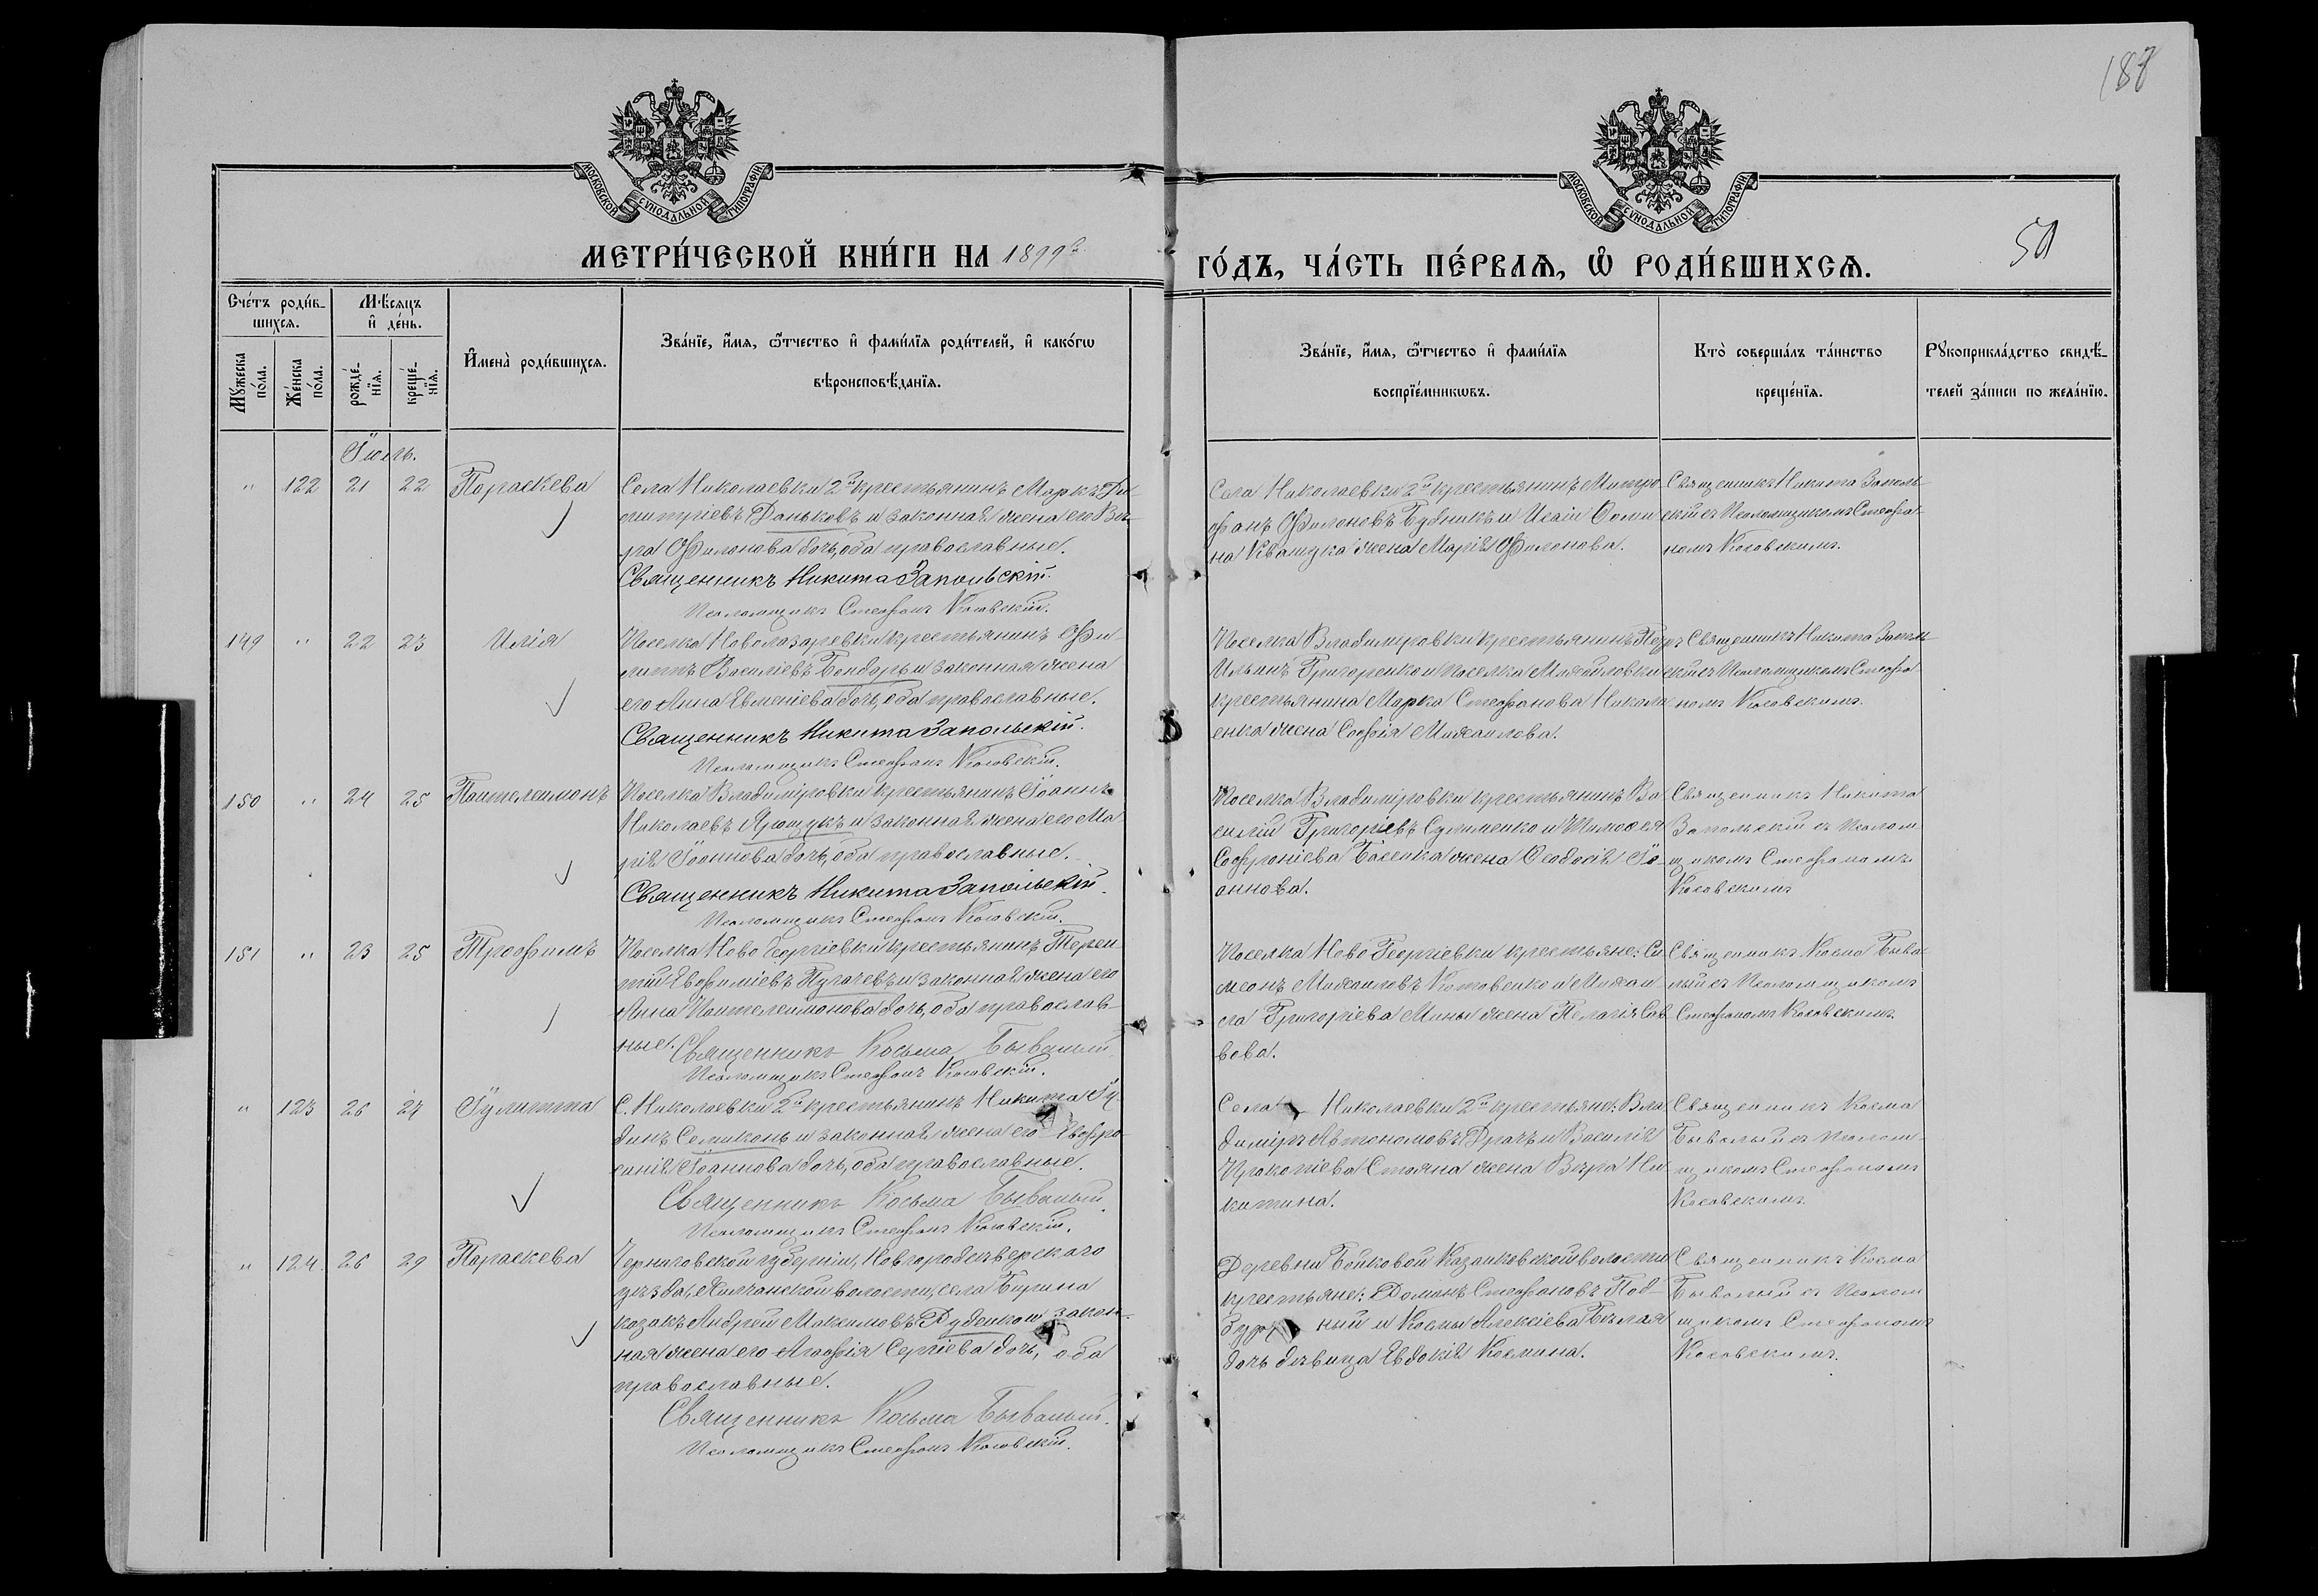 188
МОСКОВСКОЙ СѴНОДАЛЬНОЙ ТИПОГРАФІИ
МОСКОВСКОЙ СѴНОДАЛЬНОЙ ТИПОГРАФІИ
МЕТРИ́ЧЕСКОЙ КНИ́ГИ НА 1899 г.
ГО́ДЪ, ЧА́СТЬ ПЕ́РВАѦ, Ѡ РОДИ́ВШИХСѦ.
50
Сче́тъ роди́в-
шихсѧ.
Мꙋжеска по́ла.
Же́нска по́ла.
Мѣ́сѧцъ и҆ де́нь.
рожде́-нїѧ.
креще́-нїѧ.
И҆мена̀ роди́вшихсѧ.
Зва́нїе, и҆́мѧ, ѻ҆́тчество и҆ фами́лїѧ роди́телей, и҆ како́гѡ
вѣроисповѣ́данїѧ.
Зва́нїе, и҆́мѧ, ѻ҆́тчество и҆ фами́лїѧ
воспрїе́мникѡвъ.
Кто̀ соверша́лъ та́инство
креще́нїѧ.
Рꙋкоприкла́дство свидѣ́-
телей за́писи по жела́нїю.
Іюль.
" 122 21 22 Параскева
Села Николаевки 2й крестьянинъ Маркъ Ди-
митріевъ Даньковъ и законная жена его Вѣ-
ра Филонова дочь, оба православные.
Священникъ Никита Запольскій.
Псаломщикъ Стефанъ Косовскій.
Села Николаевки 2й крестьянинъ Митро-
фанъ Филоновъ Будникъ и Исаіи Фоми-
на Квашука жена Марія Филонова.
Священникъ Никита Заполь-
скій съ Псаломщикомъ Стефа-
номъ Косовскимъ.
149 " 22 23 Илія
Поселка Новолазаревки крестьянинъ Фи-
липпъ Василіевъ Бондарь и законная жена
его Анна Евменіева дочь, оба православные.
Священникъ Никита Запольскій.
Псаломщикъ Стефанъ Косовскій.
Поселка Владиміровки крестьянинъ Петръ
Ильинъ Григоренко и поселка Михайловки
крестьянина Марка Стефанова Никола-
енка жена Софія Михаилова.
Священникъ Никита Заполь-
скій съ Псаломщикомъ Стефа-
номъ Косовскимъ.
150 " 24 25 Пантелеимонъ
Поселка Владиміровки крестьянинъ Іоаннъ
Николаевъ Ярощукъ и законная жена его Ма-
рія Іоаннова дочь, оба православные.
Священникъ Никита Запольскій.
Псаломщикъ Стефанъ Косовскій.
Поселка Владиміровки крестьянинъ Ва-
силій Григоріевъ Сулименко и Тимофея
Софроніева жена Феодосія Іо-
аннова.
Священникъ Никита
Запольскій съ Псалом-
щикомъ Стефаномъ
Косовскимъ
151 " 23 25 Трофимъ
Поселка Ново Георгіевки крестьянинъ Терен-
тій Евфиміевъ Пугачевъ и законная жена его
Анна Пантелеимонова дочь, оба православ-
ные. Священникъ Косьма Бывалый.
Псаломщикъ Стефанъ Косовскій.
Поселка Ново Георгіевки крестьяне: Си-
меонъ Михаиловъ Котовенко и Михаи-
ла Григоріева Мины жена Пелагія Сав-
вова.
Священникъ Косма Быва-
лый съ Псаломщикомъ
Стефаномъ Косовскимъ.
" 123 26 27 Іулитта
С. Николаевки 2й крестьянинъ Никита Іу-
динъ Семиконь и законная жена его Евфро-
синія Іоаннова дочь, оба православные.
Священникъ Косьма Бывалый.
Псаломщикъ Стефанъ Косовскій.
Села Николаевки 2й крестьяне: Вла-
диміръ Автономовъ Драчъ и Василія
Прокопіева Стояна жена Вѣра Ни-
китина.
Священникъ Косма
Бывалый съ Псалом-
щикомъ Стефаномъ
Косовскимъ.
" 124 26 29 Параскева
Черниговской губерніи, Новгородсѣверскаго
уѣзда, волости, села Бирина
козакъ Андрей Максимовъ Руденко и закон-
ная жена его Агафія Сергіева дочь, оба
православные.
Священникъ Косьма Бывалый.
Псаломщикъ Стефанъ Косовскій.
Деревни Бойковой Казанковской волости
крестьяне: Доманъ Стефановъ Под-
ный и Космы Алексіева Бѣлая
дочь дѣвица Евдокія Космина.
Священникъ Косма
Бывалый съ Псалом-
щикомъ Стефаномъ
Косовскимъ.